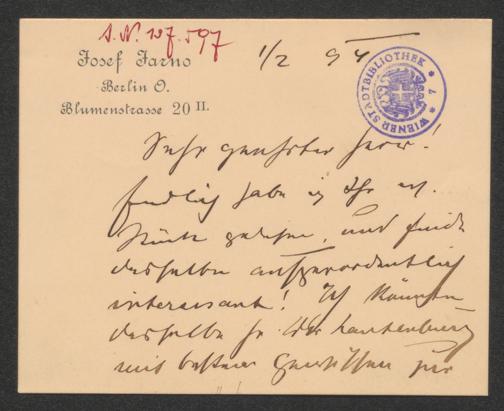 I.N. 107.597
Josef Jarno
Berlin O.
Blumenstrasse 20 II.
1/2 94
WIENER STADTBIBLIOTHEK * 7 *
Sehr geehrter Herr!
Endlich habe ich Ihr
Stück gelesen, und finde
dasselbe außerordentlich
interessant! Ich
dasselbe Lautenburg
mit bestem Gewissen zur